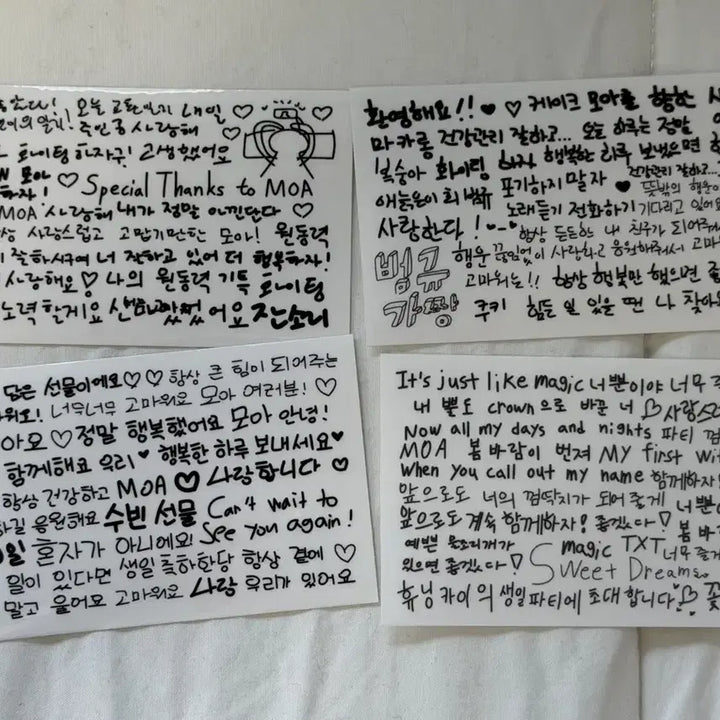 오늘 고단했지 내일 ♡
주인공 사랑해 ♡ ♡
파이팅 하자구! 고생했어요
모아 ♡ Special Thanks to MOA
하자!
MOA 사랑해 내가 정말 아낀단다 ♡
사랑스럽고 고맙기만한 모아! 원동력
잘하시구여 너 잘하고 있어 더 행복하자!
사랑해요♡ 나의 원동력 기특 화이팅
노력할게요 생일 어요 잔소리
환영해요!! ♥ ♡ 케이크 모아를 향한
마카롱 건강관리 잘하고... 오늘 하루는 정말
복숭아 화이팅 하자 행복한 하루 보냈으면
애늙은이 희 범규 포기하지말자 건강관리 잘하고...
♥ 뜻밖의 행운
노래듣기 전화하기 기다리고 있어요
사랑한다! 항상 든든한 내 친구가 되어주
범규 행운 끊임없이 사랑하고 응원해줘서 고마
고마워는!! 항상 행복만 했으면
가짱 쿠키 힘든 일 있을 땐 나 찾아
담은 선물이에요♡♡ 항상 큰 힘이 되어주는
워요! 너무너무 고마워요 모아 여러분! ♡
아요 ♡ 정말 행복했어요 모아 안녕!
함께해요 우리♥ 행복한 하루 보내세요♥
항상 건강하고 MOA ♥ 사랑합니다 ♡
하길 응원해요 수빈 선물 Can't wait to
see you again!
일 혼자가 아니에요! 생일 축하한당 항상 곁에 ♡
일이 있다면
말고 웃어요 고마워요 사랑 우리가 있어요
It's just like magic 너뿐이야 너무
내 뿔도 crown으로 바꾼 너 ♡ 사랑
Now all my days and nights 파티
MOA 봄바람이 번져 My first wi
When you call out my name 함께하자!
앞으로도 너의 껌딱지가 되어 줄게 너뿐
앞으로도 계속 함께하자! 좋겠다♡ 봄 바
예쁜 목소리개가 magic TXT 너무 좋
있으면 좋겠다♡ Sweet Dreams.
휴닝카이의 생일파티에 초대합니다 ♡